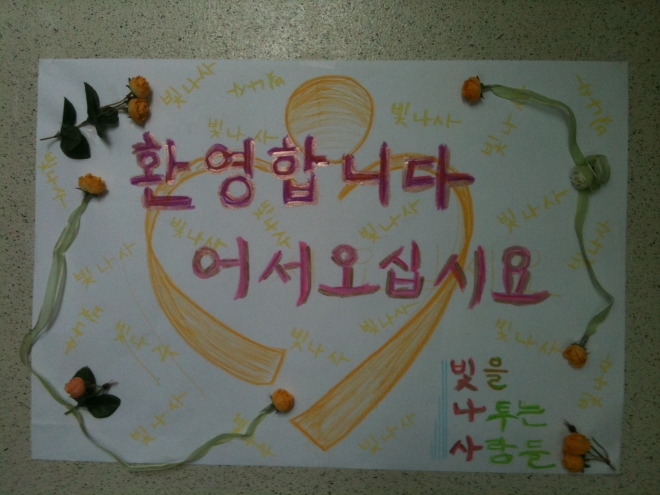 빛나사
빛나사
빛나사
빛나사
빛나사
빛나사
빛나사
환영합니다
빛나사
빛나사
빛나사
빛나사
빛나사
어서오십시요
빛나사
빛나사
빛나사
빛나사
빛나사
빛나사
빛을
나투는
사람들
빛나사
빛나사
빛나사
빛나사